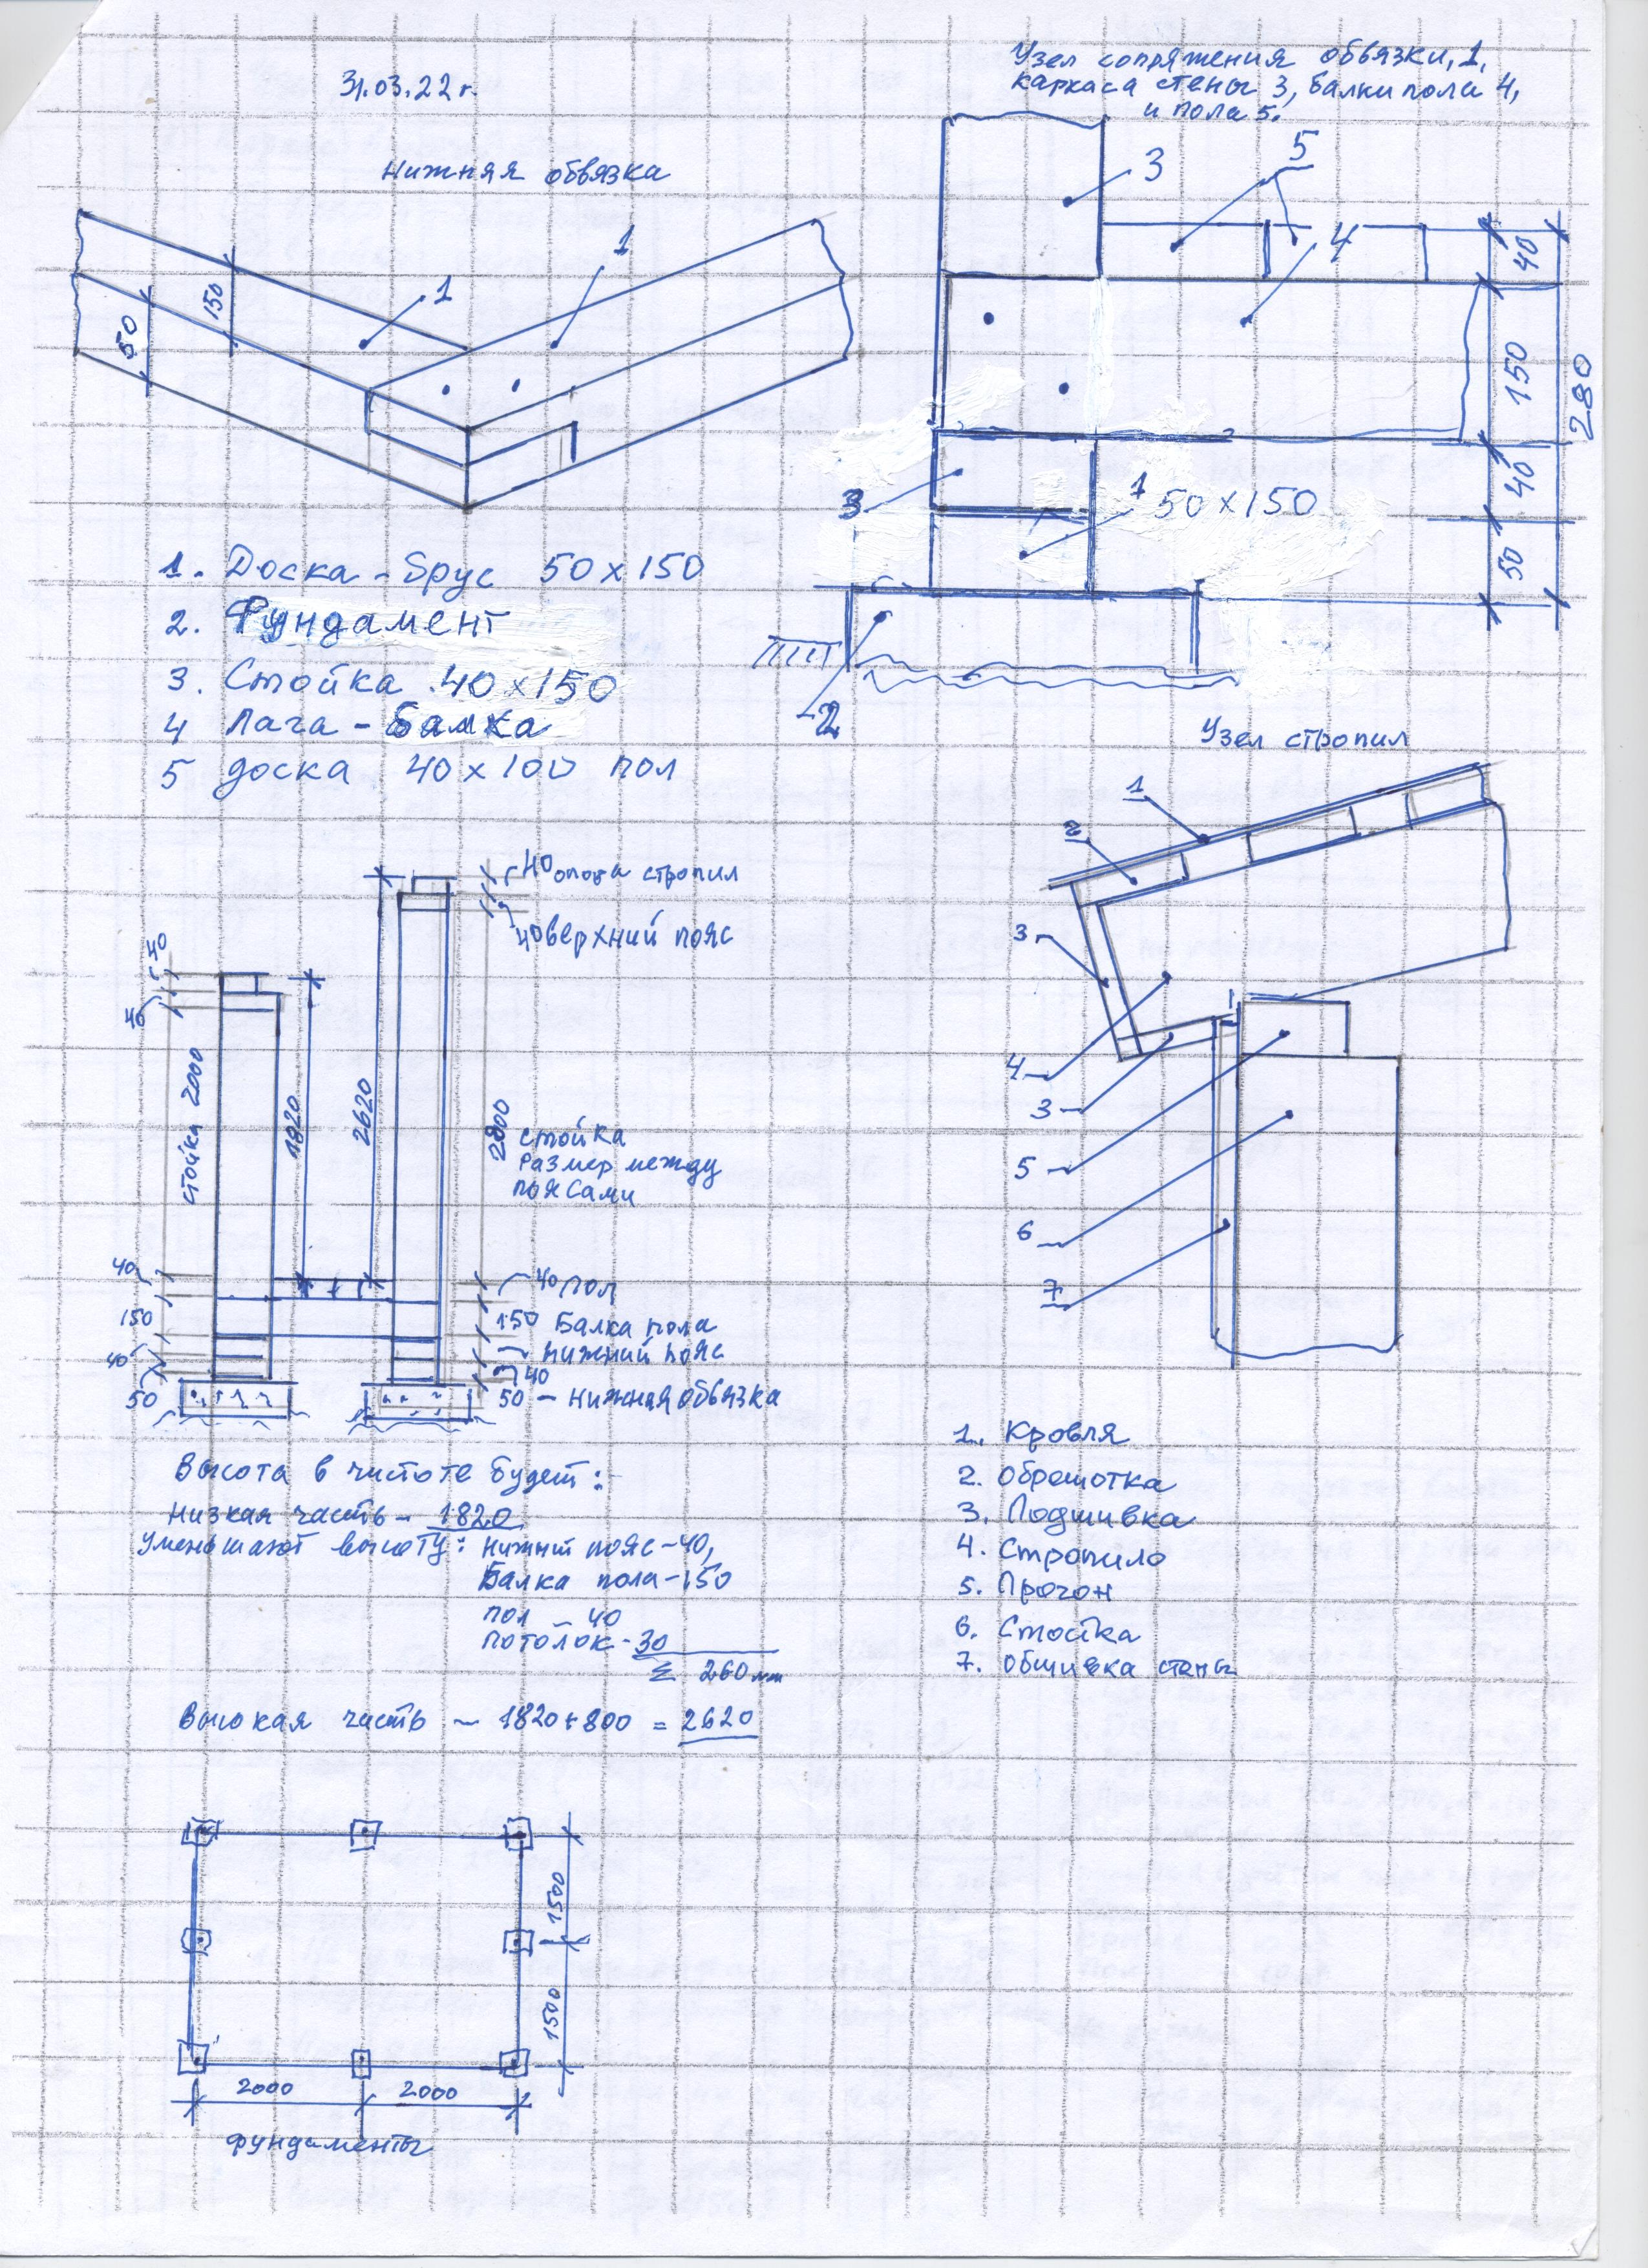 31.03.22 г.
Нижняя обвязка
1
1
150
50
1. Доска - брус 50 х 150
2. Фундамент
3. Стойка 40 х 150
4 Лага - балка
5 доска 40 х 100 пол
Узел сопряжения обвязки, 1,
каркаса стены 3, балки пола 4,
и пола 5.
3
5
4
40
150
280
40
50
3
1 50 х 150
2
Узел стропил
1
2
3
4
3
5
6
7
1. Кровля
2. Обрешотка
3. Подшивка
4. Стропило
5. Прогон
6. Стойка
7. обшивка стены
40 опора стропил
40 верхний пояс
40
40
стойка 2000
1820
2620
2800
стойка
размер между
поясами
40
150
40
50
40 пол
150 Балка пола
нижний пояс
40
50 - нижняя обвязка
Высота в чистоте будет:
Низкая часть - 1820
Уменьшают высоту: нижний пояс - 40,
Балка пола - 150
пол - 40
потолок - 30
Σ 260 мм
Высокая часть - 1820 + 800 = 2620
1500
1500
2000 2000
фундаменты